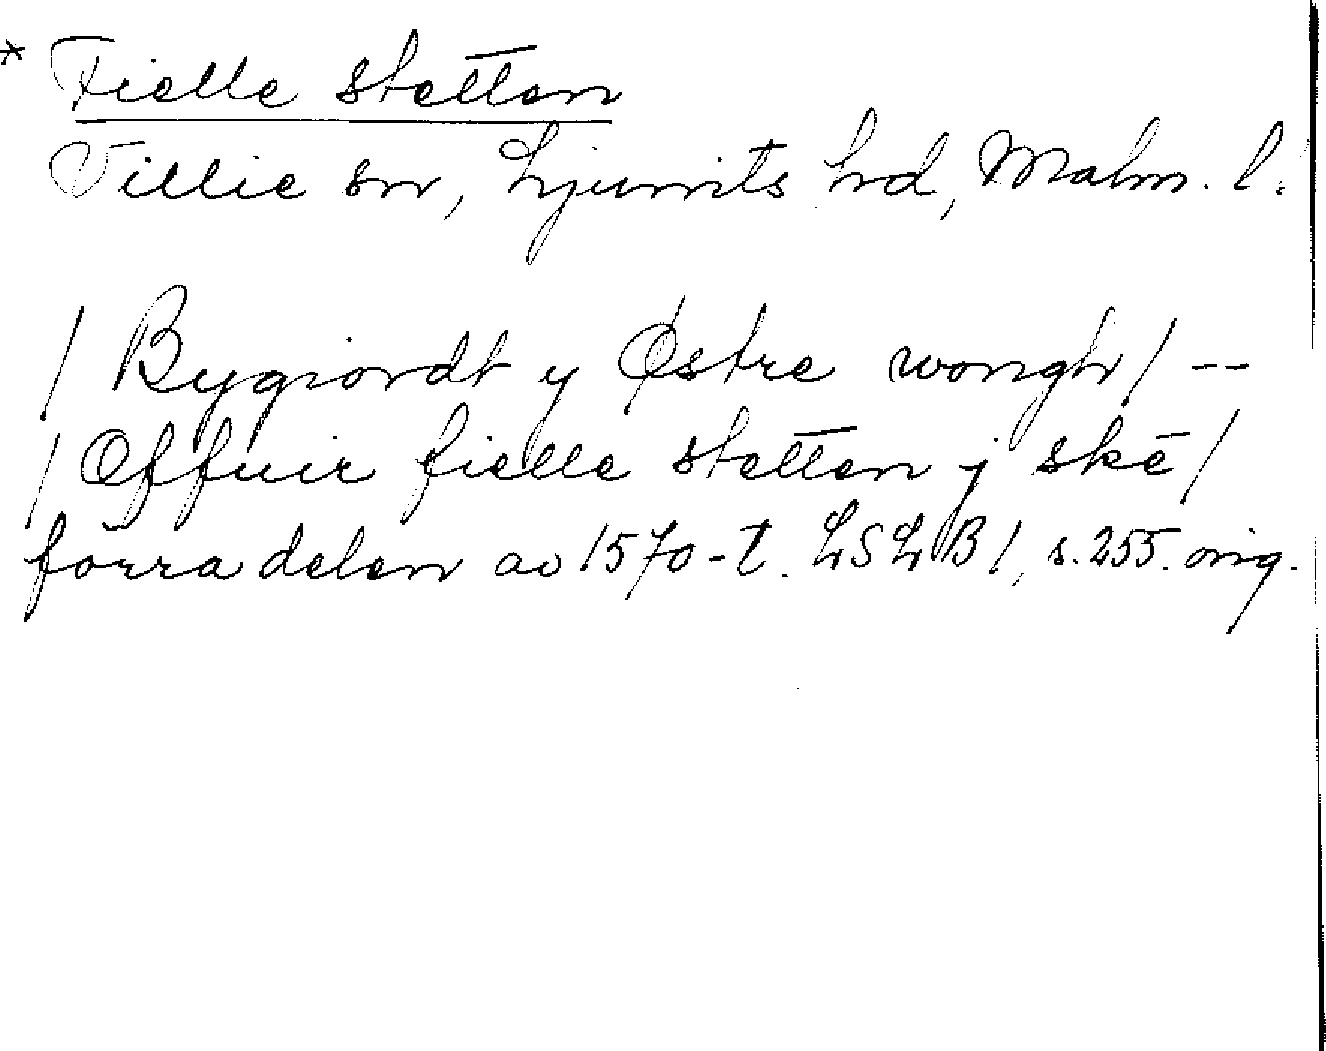 * Fielle stetten
Villie sn, Ljunits hd, Malm. l.
/ Bygiordt y Østre wongh / --
/ Offuir fielle stetten j skē /
förra delen av 1570-t. LSLB 1, s. 255. orig.